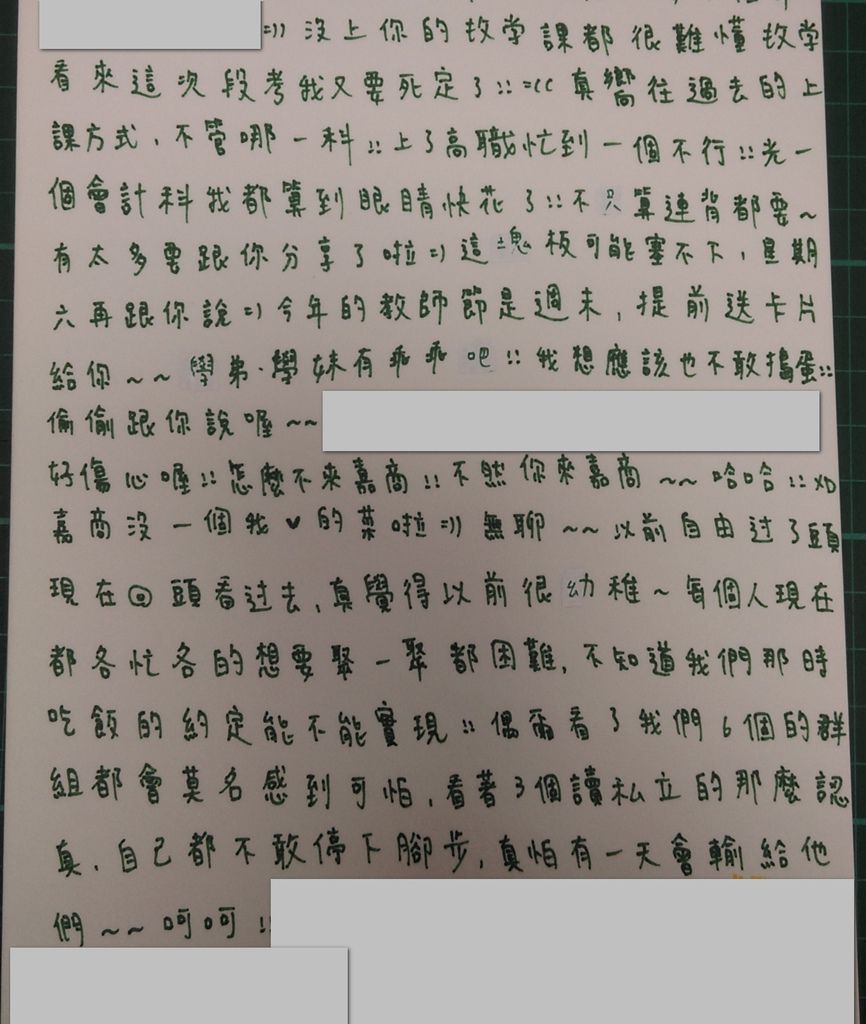 =)) 沒上你的教学課都很難懂教学
看來這次段考我又要死定了:: =(( 真嚮往過去的上
課方式，不管哪一科::上了高職忙到一個不行::光一
個會計科我都算到眼睛快花了::不只算連背都要~
有太多要跟你分享了啦=)這塊板可能塞不下，星期
六再跟你說=)今年的教師節是週末，提前送卡片
給你~~學弟.學妹有乖乖吧::我想應該也不敢搗蛋::
偷偷跟你說喔~~
好傷心喔::怎麼不來嘉商::不然你來嘉商~~哈哈::XD
嘉商沒一個我♥的菜啦=))無聊~~以前自由过了頭
現在回頭看过去，真覺得以前很幼稚~每個人現在
都各忙各的想要聚一聚都困難，不知道我們那時
吃飯的約定能不能實現::偶爾看了我們6個的群
組都會莫名感到可怕，看著3個讀私立的那麼認
真，自己都不敢停下腳步，真怕有一天會輸給他
們~~呵呵::